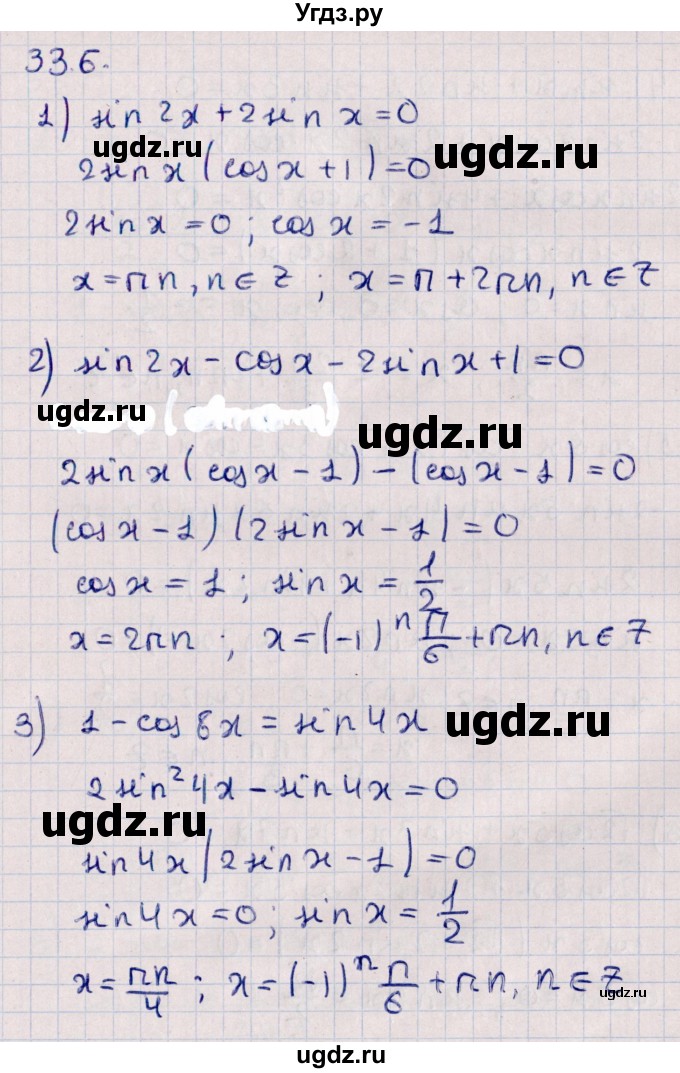 Угдз.ру
33.6.
1) sin 2x + 2 sin x = 0
ugdz.ru
ugdz.ru
2 sin x (cos x + 1) = 0
2 sin x = 0; cos x = -1
x = πn, n ∈ Z; x = π + 2πn, n ∈ Z
2) sin 2x - cos x - 2 sin x + 1 = 0
ugdz.ru
ugdz.ru
2 sin x (cos x - 1) - (cos x - 1) = 0
(cos x - 1) (2 sin x - 1) = 0
cos x = 1; sin x = 1/2
x = 2πn; x = (-1)^n π/6 + πn, n ∈ Z
3) 1 - cos 8x = sin 4x
ugdz.ru
2 sin² 4x - sin 4x = 0
ugdz.ru
sin 4x (2 sin x - 1) = 0
sin 4x = 0; sin x = 1/2
x = πn/4; x = (-1)^n π/6 + πn, n ∈ Z
ugdz.ru
ugdz.ru